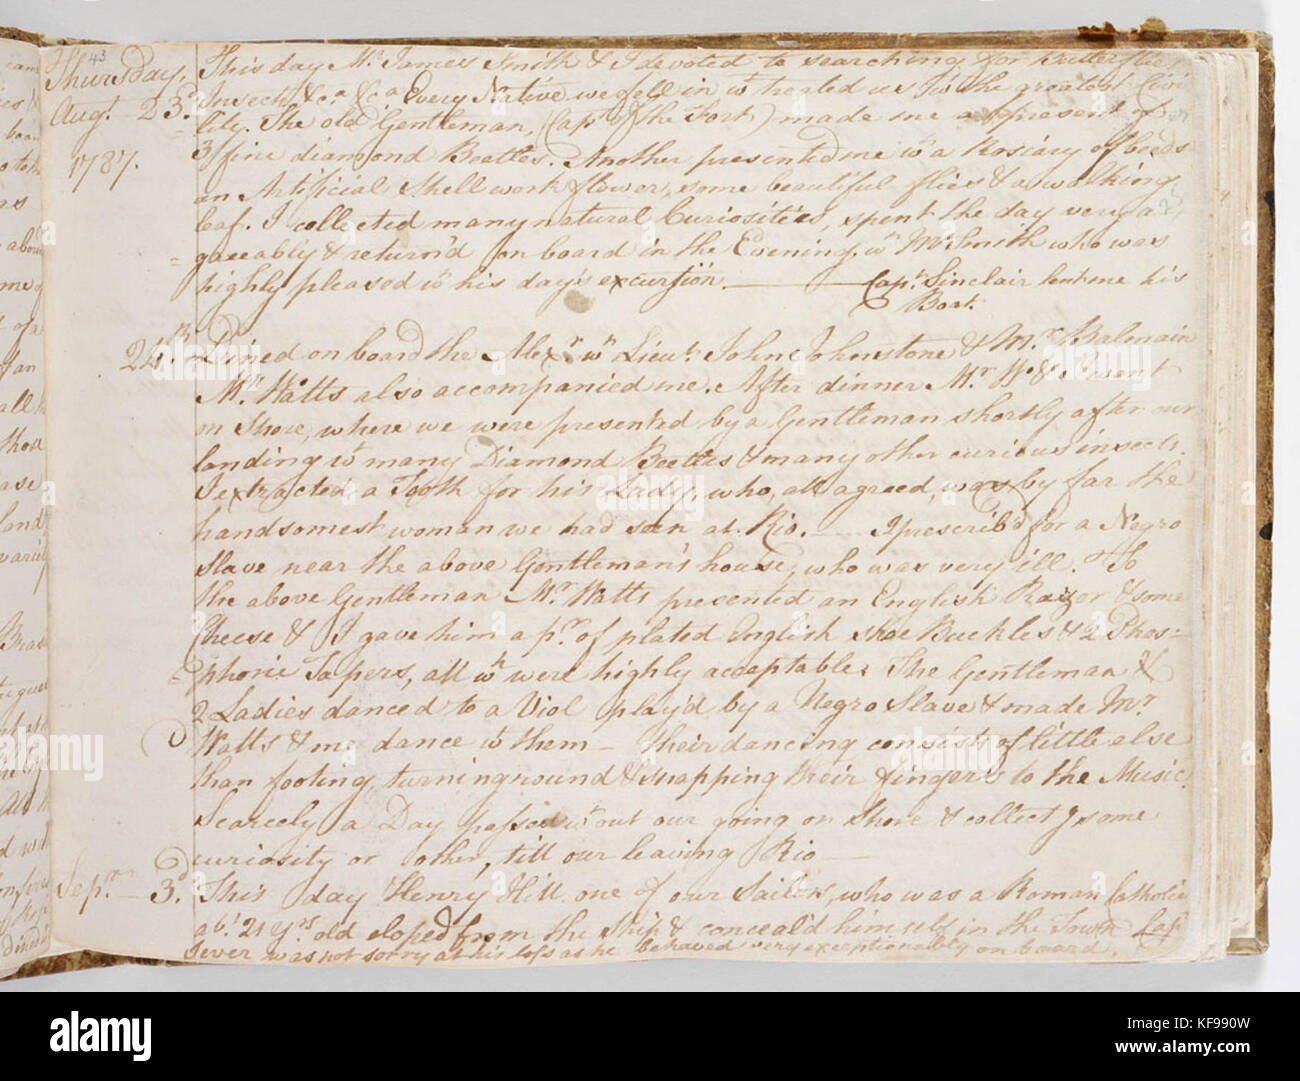 43
Thursday, This day Mr. James Smith & I devoted to searching for Butterflies
Augt. 23d. Insects &ca. &ca. Every Native we fell in wt. treated us wt. the greatest Civi
1787. lity. The old Gentleman, (Capn. of the Fort) made me a present of
3 fine diamond Beetles. Another presented me wt. a Rosiary of beeds
an Artificial Shell work flower, some beautiful flies & a walking
leaf. I collected many natural Curiosities, spent the day very a
= greeably & return'd on board in the Evening. wt. Mr. Smith who was
highly pleased wt. his day's excursion. — Capn. Sinclair lent me his
Boat.
24th. Dined on board the Alexr. wt. Lieut. John Johnstone & Mr. Balmain
Mr. Watts also accompanied me. After dinner Mr. W. & I went
on Shore, where we were presented by a Gentleman shortly after our
landing wt. many Diamond Beetles & many other curious insects.
I extracted a Tooth for his Lady, who, all agreed, was by far the
handsomest woman we had seen at Rio. — I prescrib'd for a Negro
Slave near the above Gentleman's house, who was very ill. To
the above Gentleman Mr. Watts presented an English Razor & some
Cheese & I gave him a pr. of plated English shoe Buckles & 2 Phos=
=phoric Tapers, all wh. were highly acceptable. The Gentleman &
2 Ladies danced to a Viol play'd by a Negro Slave & made Mr.
Watts & me dance wt. them — their dancing consists of little else
than footing, turning round & snapping their fingers to the Music.
Scarcely a Day passed wt.out our going on Shore & collectg. some
curiosity or other, till our leaving Rio —
Sepr. — 3d. This day Henry Hill one of our Sailors, who was a Roman Catholic
abt. 21 yrs. old eloped from the Ship & conceal'd himself in the Town Capn.
Sever was not sorry at his loss as he behaved very exceptionably on board.
a
alamy
alamy
Image ID: KF990W
www.alamy.com